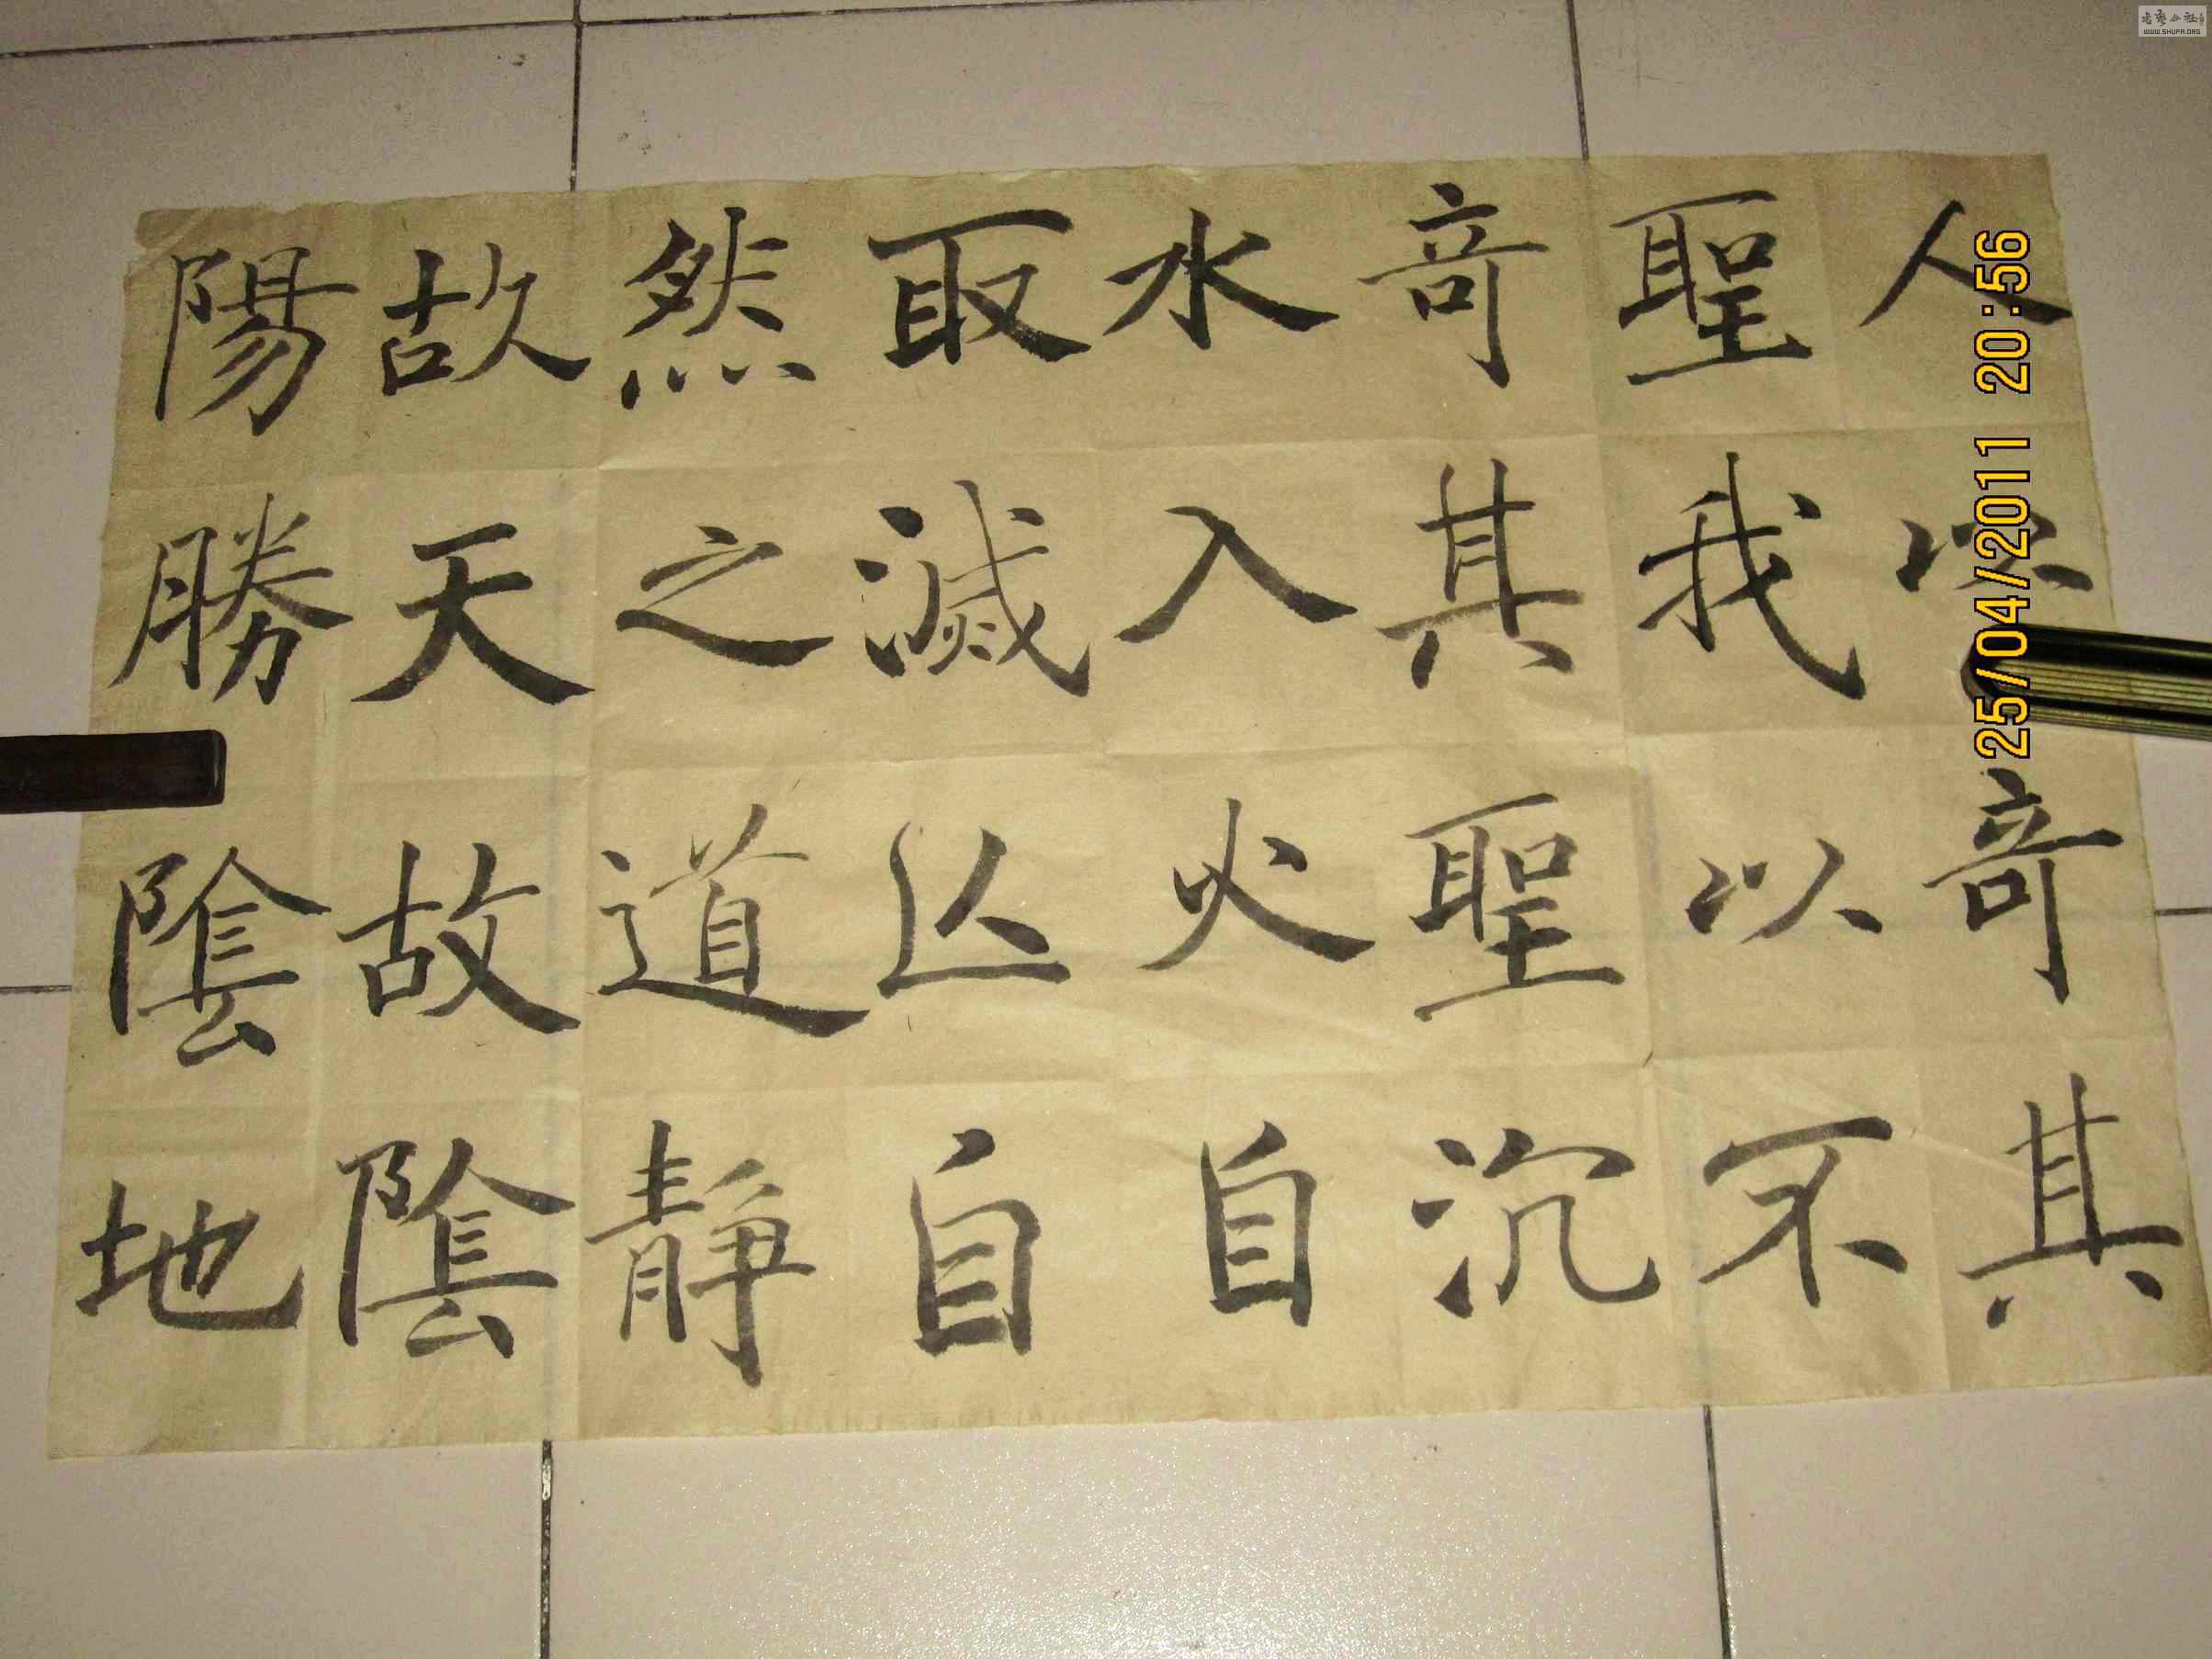 人以竒其
聖我以不
竒其聖沉
水入火自
取滅亾自
然之道靜
故天故陰
陽勝陰地
25/04/2011 20:56
WWW.SHUFA.ORG